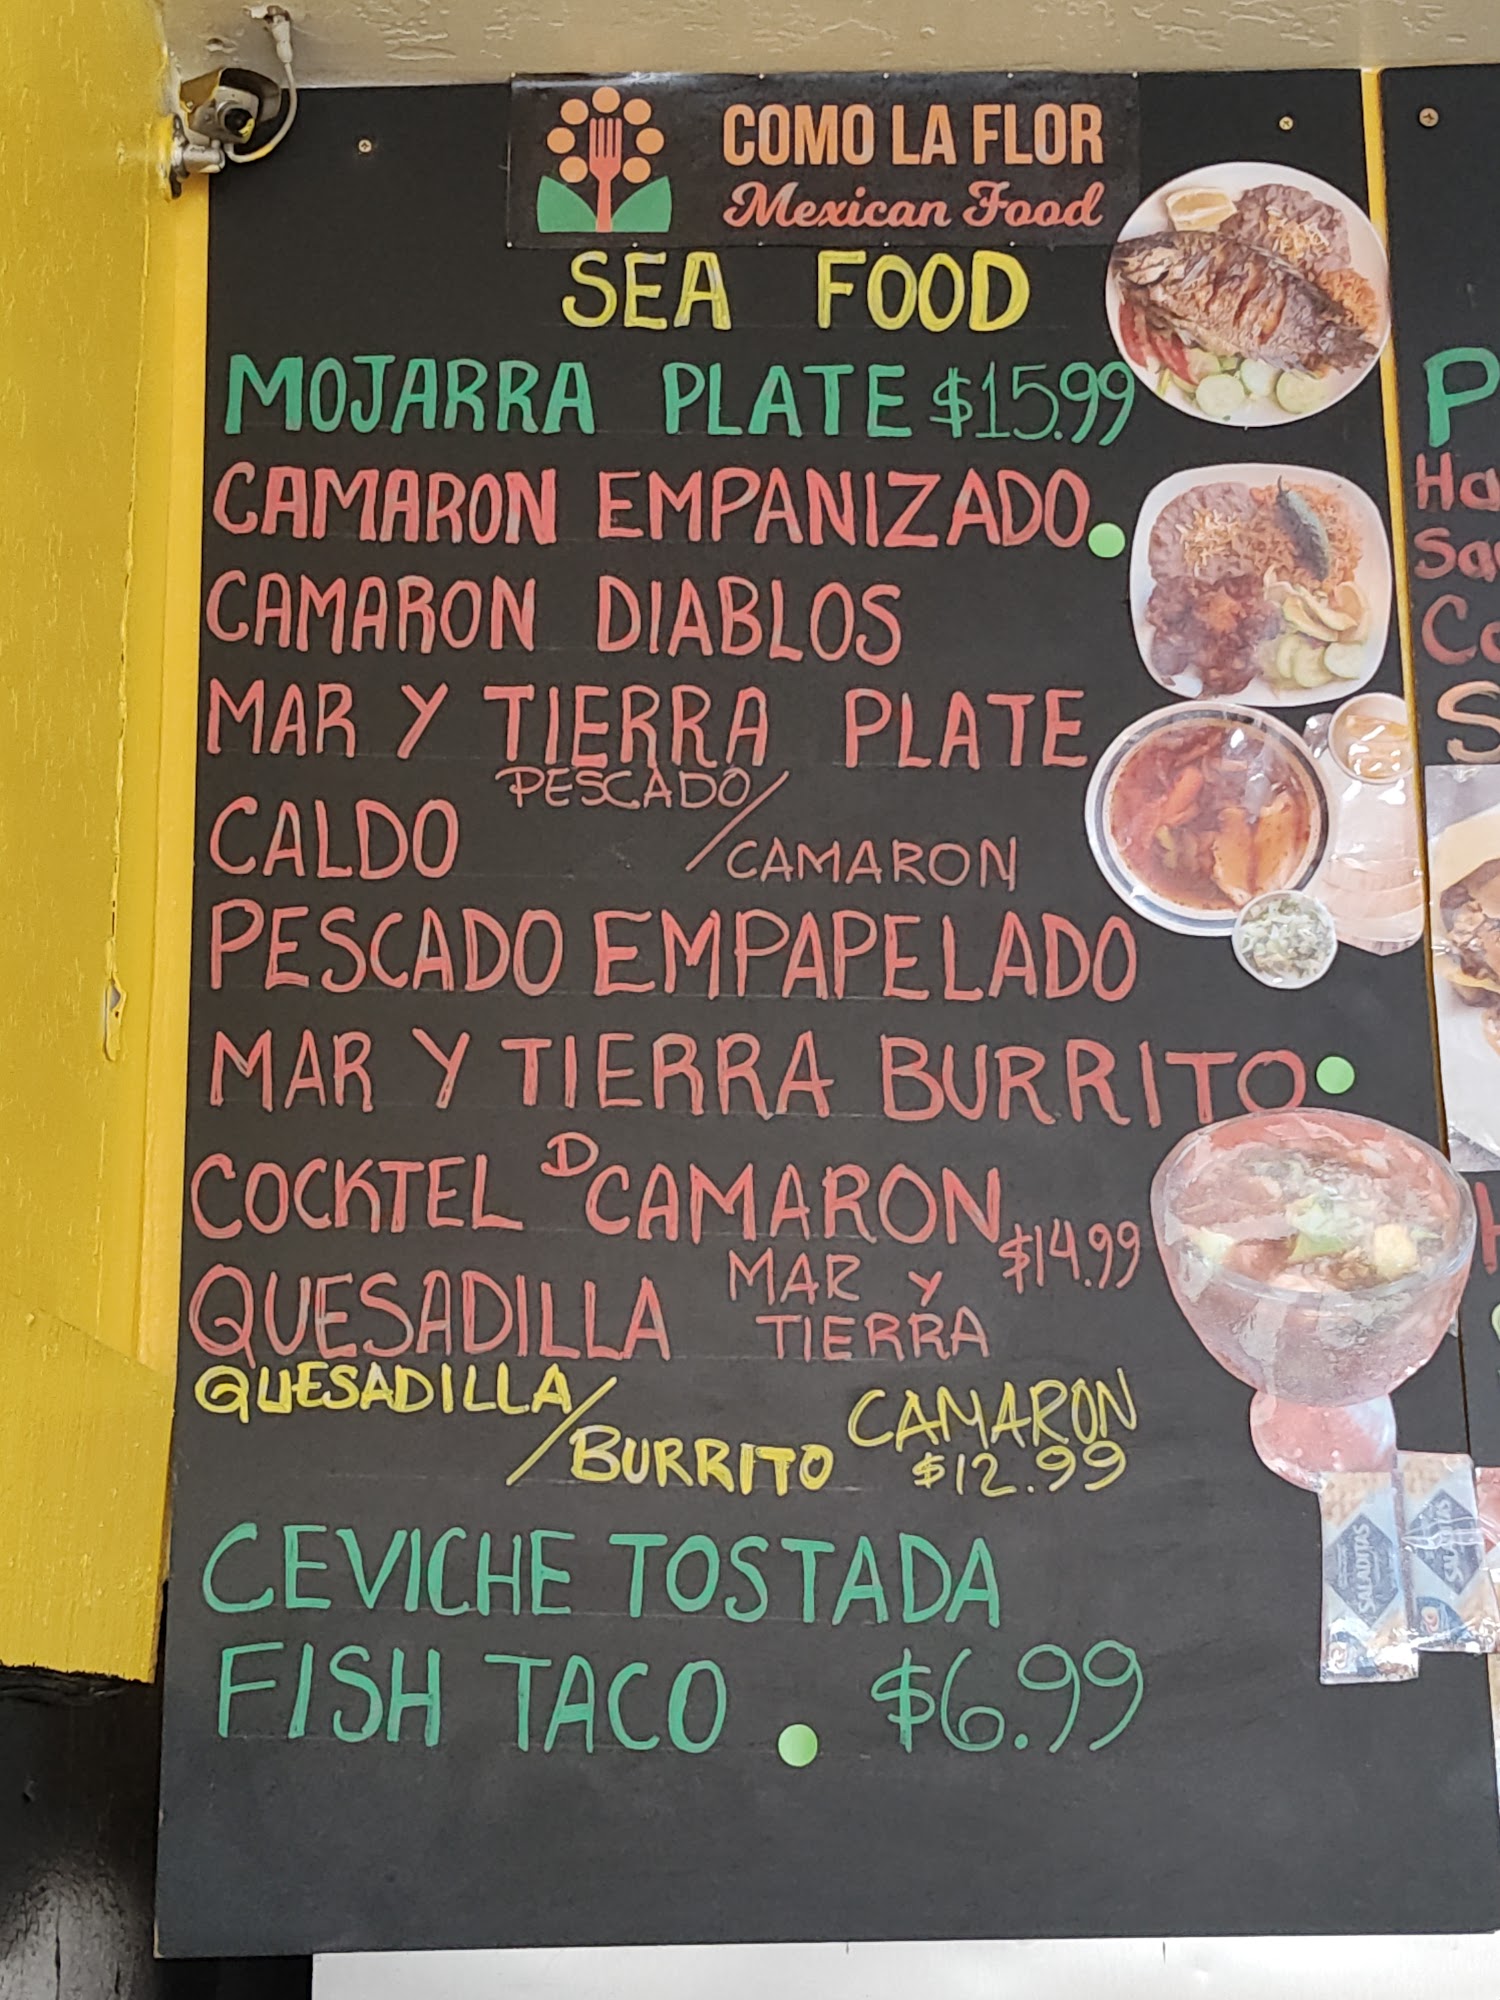 COMO LA FLOR
Mexican Food
SEA FOOD
MOJARRA PLATE $15.99
CAMARON EMPANIZADO
CAMARON DIABLOS
MAR Y TIERRA PLATE
CALDO PESCADO/CAMARON
PESCADO EMPAPELADO
MAR Y TIERRA BURRITO
COCKTEL D CAMARON
$14.99
QUESADILLA MAR Y TIERRA
QUESADILLA/BURRITO CAMARON
$12.99
CEVICHE TOSTADA
FISH TACO $6.99
SALADITAS
SALADITAS